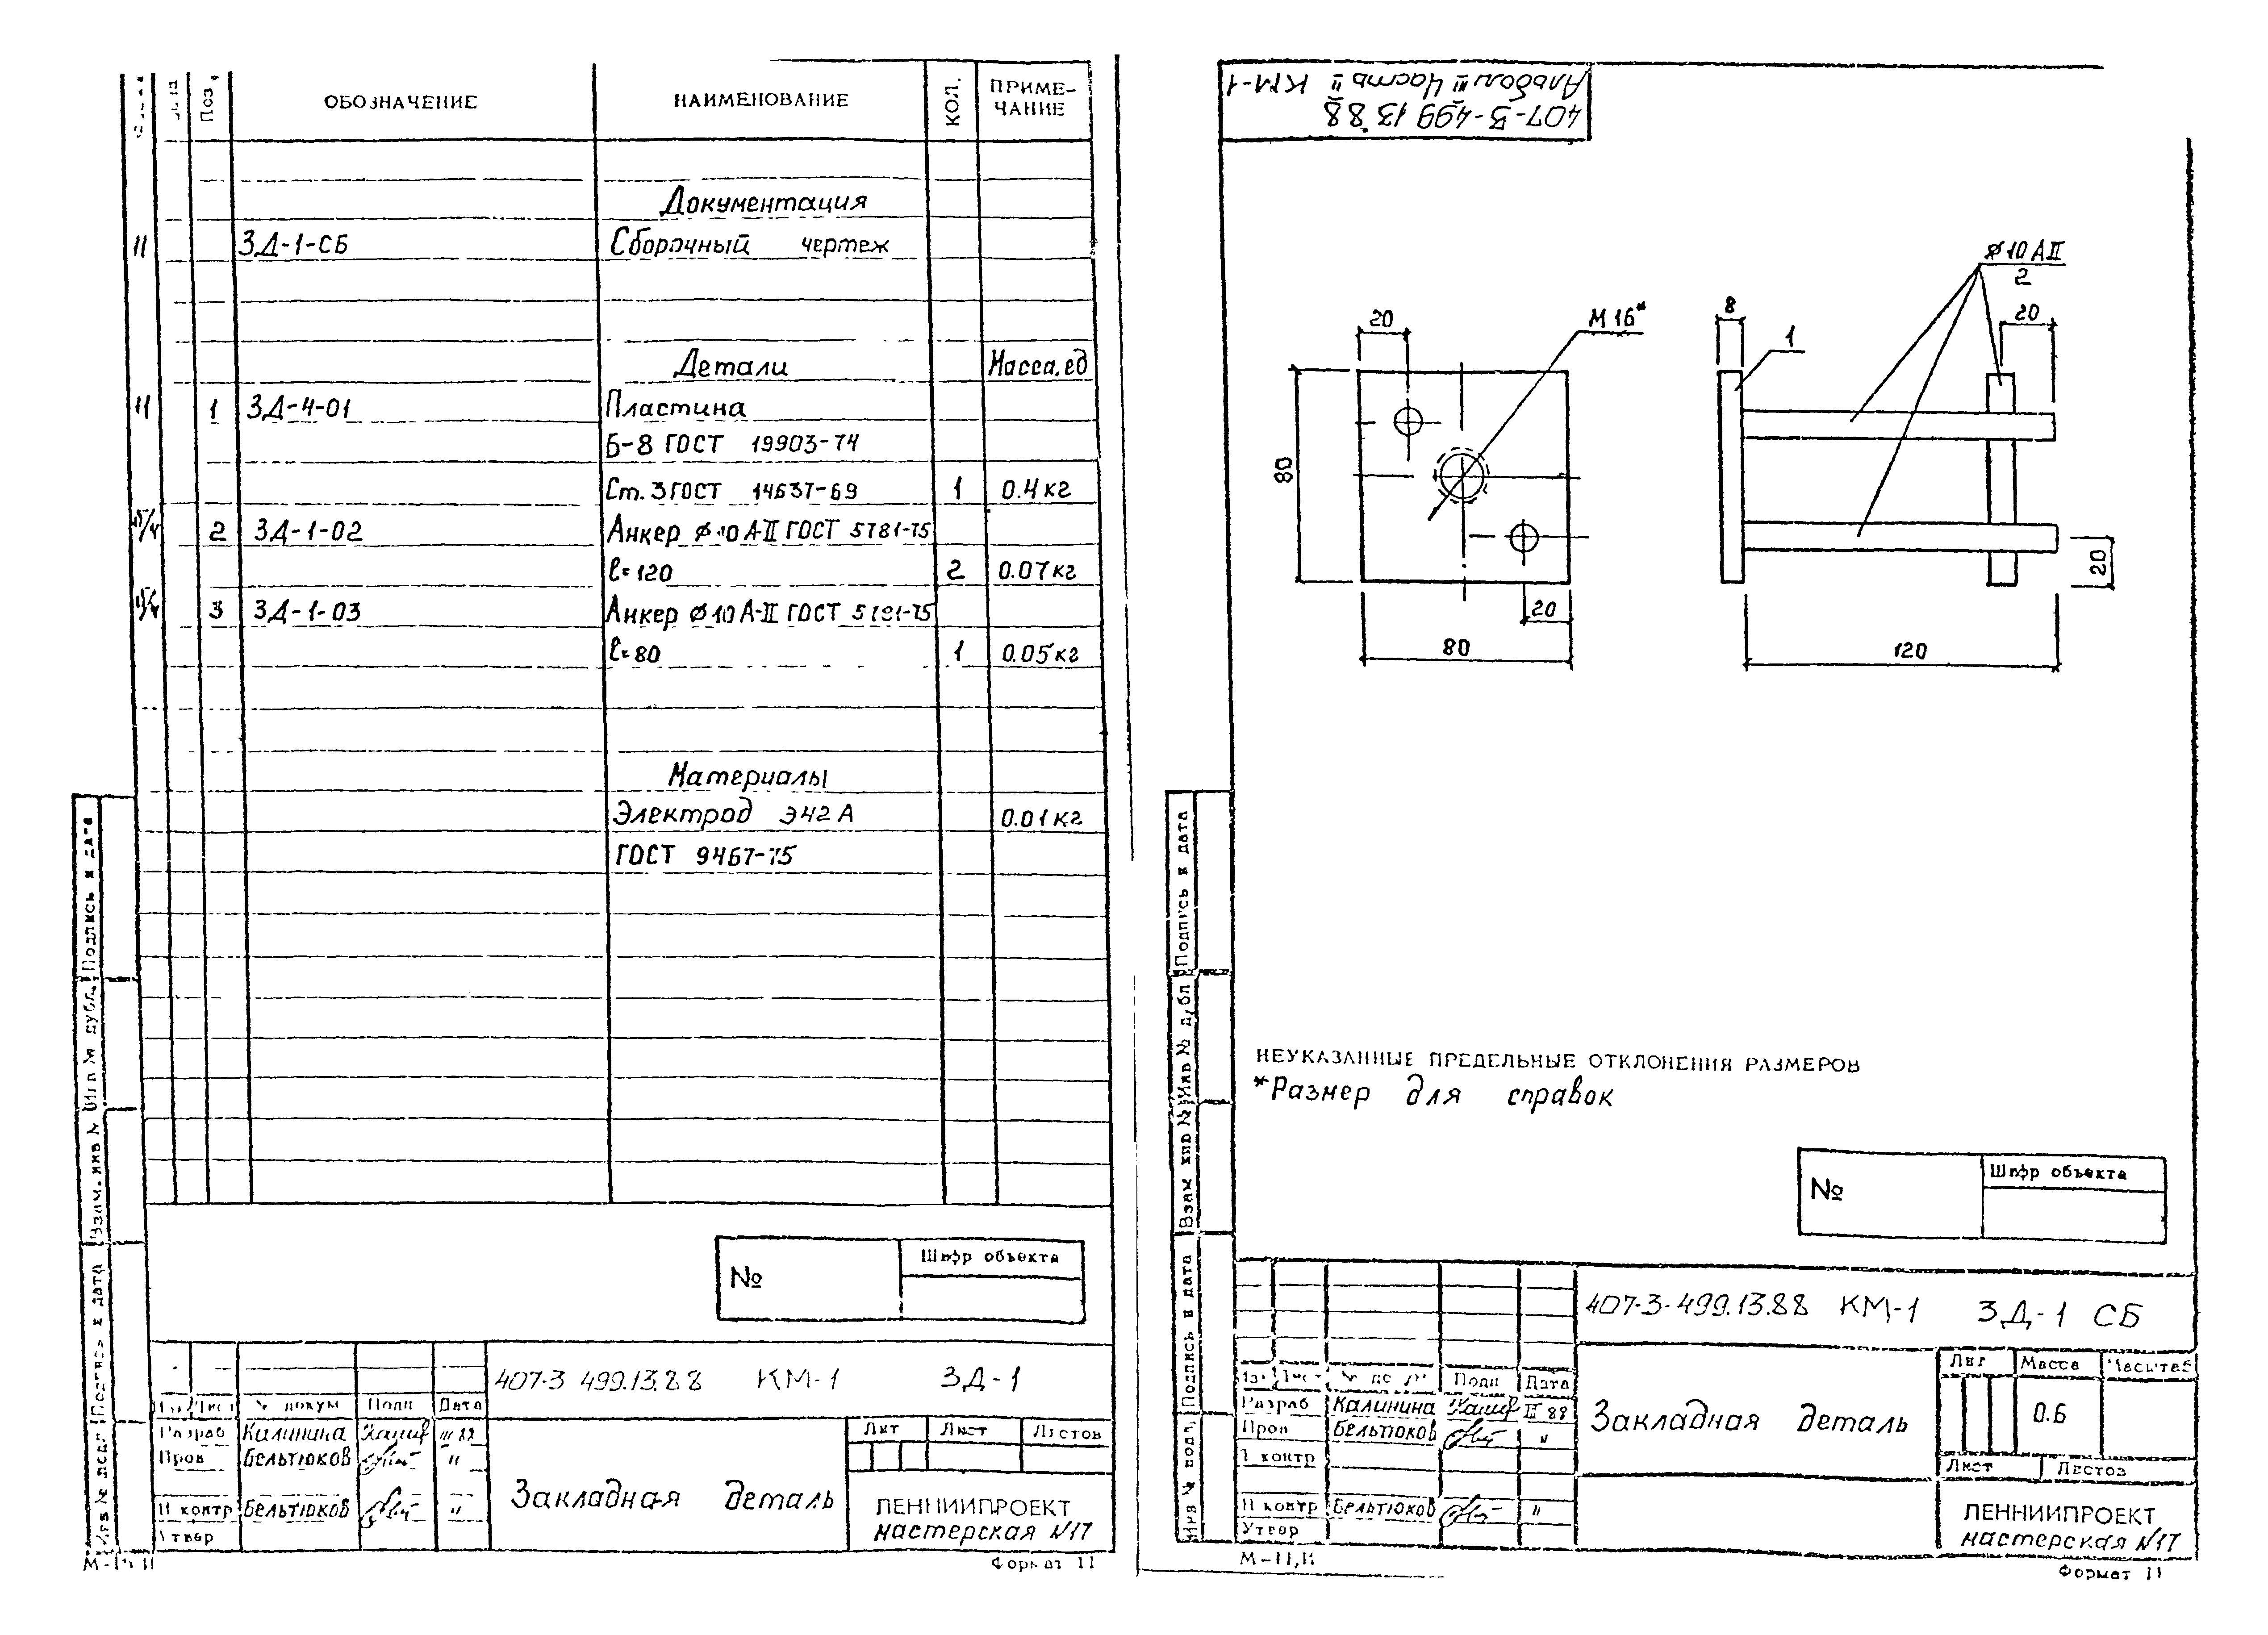 Поз.
ОБОЗНАЧЕНИЕ
НАИМЕНОВАНИЕ
КОЛ.
ПРИМЕ-
ЧАНИЕ
Документация
11 ЗД-1-СБ Сборочный чертеж
Детали Масса,ед
11 1 ЗД-4-01 Пластина
Б-8 ГОСТ 19903-74
Ст.3 ГОСТ 14637-69 1 0.4кг
2 ЗД-1-02 Анкер ⌀10 А-II ГОСТ 5781-75
ℓ=120 2 0.07кг
3 ЗД-1-03 Анкер ⌀10 А-II ГОСТ 5781-75
ℓ=80 1 0.05кг
Материалы
Электрод Э42А 0.01кг
ГОСТ 9467-75
Подпись и дата
Инв № дубл.
Взам. инв №
Подпись и дата
Инв № подл
№
Шифр объекта
407-3 499.13.88 КМ-1 ЗД-1
Лист № докум Подп Дата
Разраб Калинина III 88
Пров Бельтюков "
Н контр Бельтюков "
Утвер
Закладная деталь
Лит Лист Листов
ЛЕННИИПРОЕКТ
мастерская №17
Формат 11
407-3-499 13.88
Альбом III Часть II КМ-1
20
М16*
80
20
80
8
1
⌀10 АII
2
20
20
120
НЕУКАЗАННЫЕ ПРЕДЕЛЬНЫЕ ОТКЛОНЕНИЯ РАЗМЕРОВ
*Размер для справок
Подпись и дата
Инв № дубл
Взам инв №
Подпись и дата
Инв № подл.
№
Шифр объекта
407-3-499.13.88 КМ-1 ЗД-1 СБ
Лист Подп Дата
Разраб Калинина III 88
Пров Бельтюков "
контр
Н контр Бельтюков "
Утвер
Закладная деталь
Лит Масса Масштаб
0.6
Лист Листов
ЛЕННИИПРОЕКТ
мастерская №17
М-11,II
Формат 11